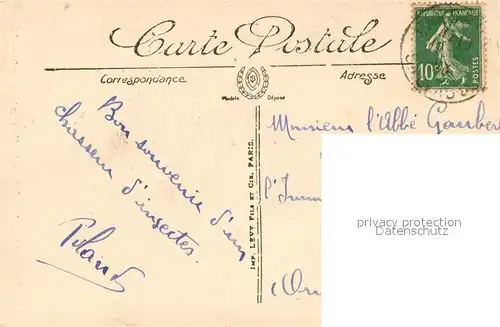 Carte Postale
Correspondance
Adresse
Modèle Déposé
REPUBLIQUE FRANÇAISE
10c
POSTES
Bon souvenir d'un
chasseur d'insectes.
IMP. LÉVY FILS ET CIE. PARIS.
Monsieur l'Abbé Gaubert
privacy protection
Datenschutz